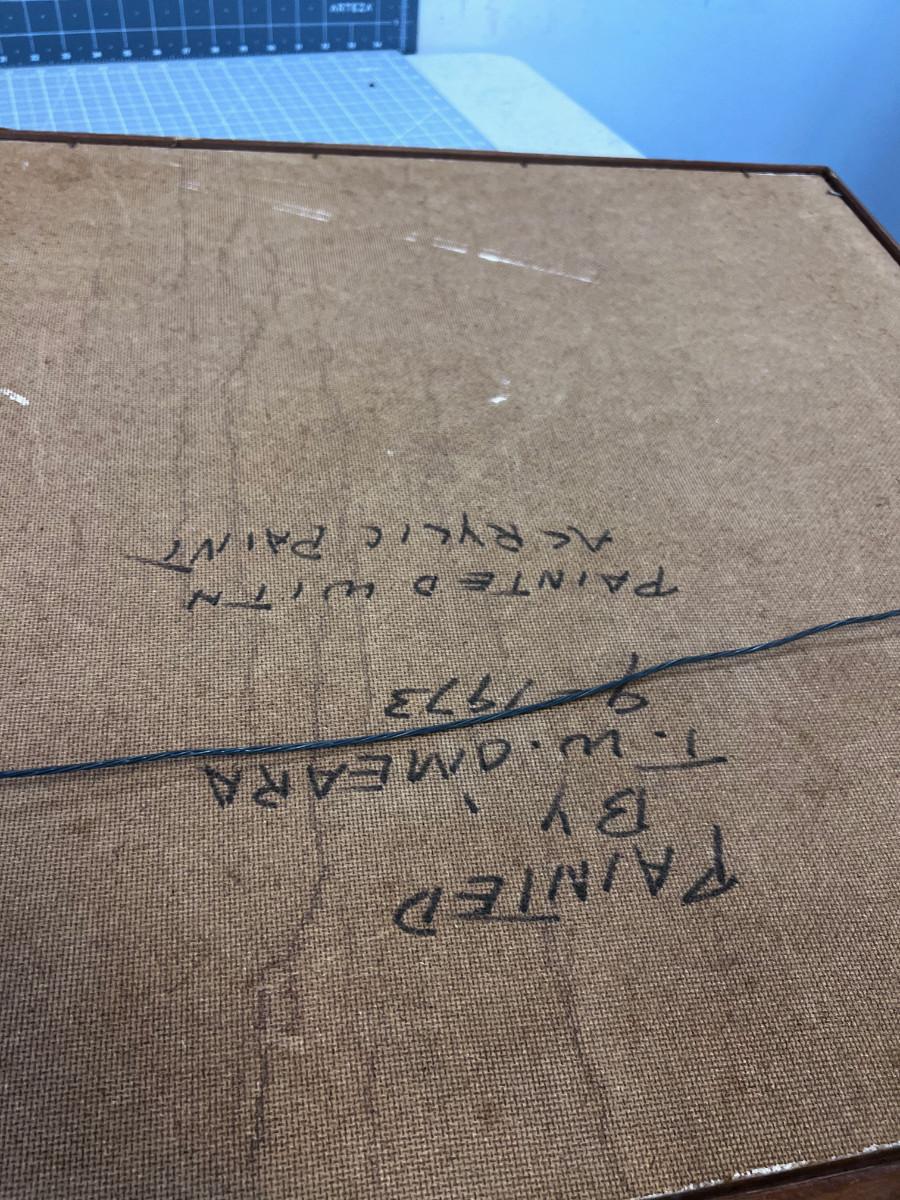 PAINTED
BY
T.W. O'MEARA
9-1973
PAINTED WITH
ACRYLIC PAINT
ARTEZA